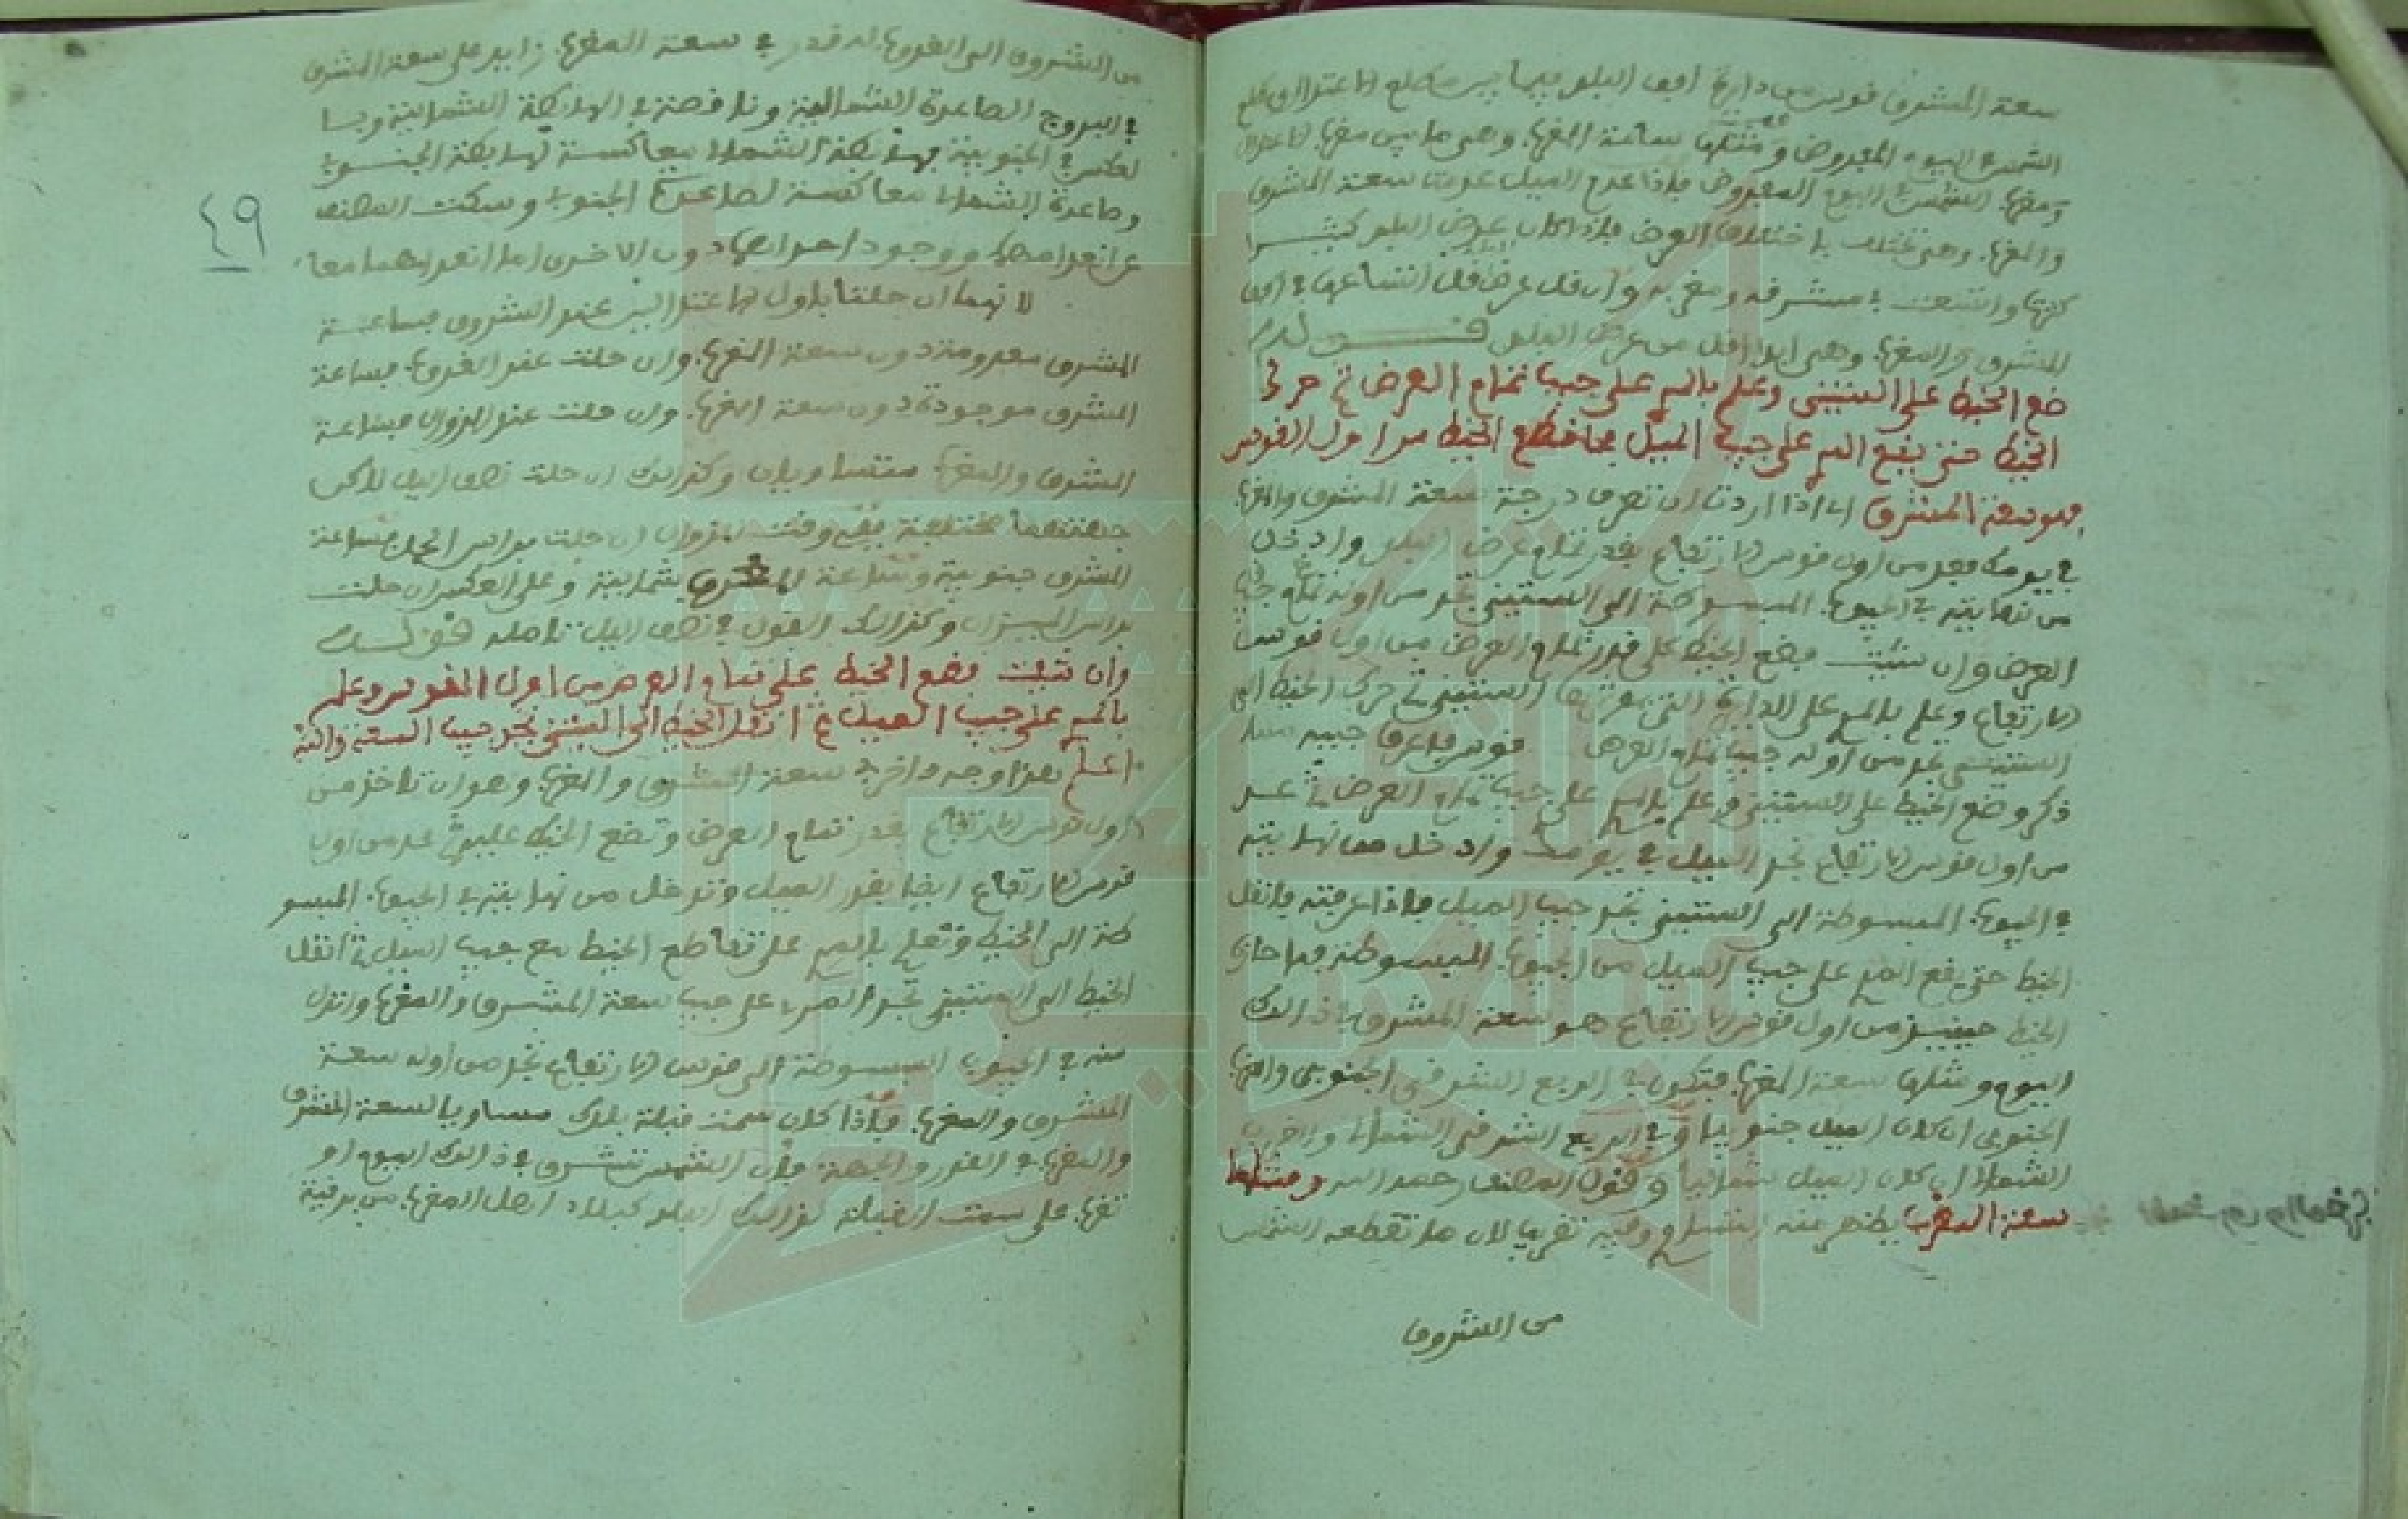 سعة المشرق قوس من دايرة افق البلد فيما بين مطلع الاعتدال ومطلع
الشمس في اليوم المفروض ومثلها ساعة المغرب وهي ما بين مغرب الاعتدال
ومغرب الشمس في اليوم المفروض فاذا عدم الميل عدمت سعة المشرق
والمغرب وهي تختلف باختلاف العرض فاذا كان عرض البلد كثيرا
كثرت واتسعت في مشرقه ومغربه وان قل عرض قل اتساعها في افق
المشرق والمغرب وهي ابدا اقل من عرض البلد قوله
ضع الخيط على الستيني وعلم بالمر على جيب تمام العرض ثم حرك
الخيط حتى يقع المر على جيب الميل فما قطع الخيط من اول القوس
فهو سعة المشرق اي اذا اردت ان تعرف درجة سعة المشرق والمغرب
في يومك فعد من اول قوس الارتفاع بقدر تمام عرض البلد وادخل
من نهايته في الجيوب المبسوطة الى الستيني تجد من اوله تمام جيب
العرض وان شئت فضع الخيط على قدر تمام العرض من اول قوس
الارتفاع وعلم بالمر على الدايرة التي الستيني ثم حرك الخيط الى
الستيني تجد من اوله جيب تمام العرض فاعرف جيبه
ذكر وضع الخيط على الستيني وعلم بالمر على جيب تمام العرض ثم عد
من اول قوس الارتفاع بقدر الميل في يومك وادخل من نهايته
في الجيوب المبسوطة الى الستيني تجد جيب الميل فاذا عرفته فانقل
الخيط حتى يقع المر على جيب الميل من الجيوب المبسوطة فما حاز
الخيط حينيذ من اول قوس الارتفاع هو سعة المشرق في ذالك
اليوم ومثلها سعة المغرب فتكون في الربع الشرقي الجنوبي والغربي
الجنوبي ان كان الميل جنوبيا وفي الربع الشرقي الشمالي والغربي
الشمالي ان كان الميل شماليا وقول المصنف رحمه الله ومثلها
سعة المغرب يظهر منه التساوي وفيه تقريب لان ما تقطعه الشمس
من الشروق
من الشروق الى الغروب له قدر في سعة المغرب زايد على سعة المشرق
في البروج الصاعدة الشمالية وناقصة في الهابطة الشمالية وبا
لعكس في الجنوبية فهابطة الشمال معاكسة لهابطة الجنوب
وصاعدة الشمال معاكسة لصاعدة الجنوب وسكت المصنف
عن انعدامهما ووجود احداهما دون الاخرى اما انعدامهما معا
لانهما ان حلت باول الاعتدالين عند الشروق فساعة
المشرق معدومة دون سعة المغرب وان حلت عند الغروب فساعة
المشرق موجودة دون سعة المغرب وان حلت عند الزوال فساعة
المشرق والمغرب متساويان وكذالك ان حلت نصف الليل لاكن
جهتهما مختلفة ففي وقت الزوال ان حلت براس الحمل فساعة
المشرق جنوبية وساعة المغرب شمالية وعلى العكس ان حلت
براس الميزان وكذالك القول في نصف الليل تامله قوله
وان شئت فضع الخيط على تمام العرض من اول القوس وعلم
بالمر على جيب الميل ثم انقل الخيط الى الستيني تجد جيب السعة والله
اعلم هذا وجه اخر في سعة المشرق والمغرب وهو ان تاخذ من
اول قوس الارتفاع بقدر تمام العرض وتضع الخيط عليه ثم عد من اول
قوس الارتفاع ايضا بقدر الميل وتدخل من نهايته في الجيوب المبسو
طة الى الخيط وتعلم بالمر على تقاطع الخيط مع جيب الميل ثم انقل
الخيط الى الستيني تجد المر على جيب سعة المشرق والمغرب وانزل
منه في الجيوب المبسوطة الى قوس الارتفاع تجد من اوله سعة
المشرق والمغرب فاذا كان سمت قبلة بلدك مساويا لسعة المشرق
والمغرب في القدر والجهة فان الشمس تشرق في ذالك اليوم او
تغرب على سمت القبلة لذالك البلد كبلاد اهل المغرب من برقية
٤٩